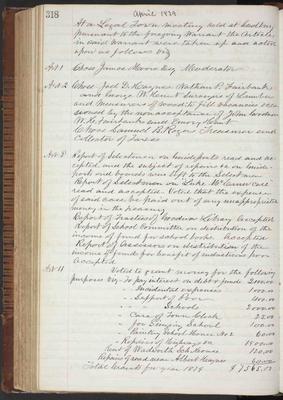 318
April 1879
At a Legal Town meeting held at Sudbury
pursuant to the foregoing Warrant the Articles
in said Warrant were taken up and acted
upon as follows viz
Art 1 Chose James Moore Esq Moderator
Art 2 Chose Joel D. Haynes Nathan P. Fairbank
and George W. Hunt Surveyors of Lumber
and Measurers of wood to fill vacancies occa
sioned by the non acceptance of John
W. H. Fairbank and
Chose Samuel B. Rogers Treasurer and
Collector of Taxes
Art 8 Report of Selectmen on Guideposts read and ac
cepted and the subject of repairs on Guide
posts and boards was left to the Selectmen
Report of Selectmen on Luke case
read and accepted. Voted that the expenses
of said case be paid out of any unappropriated
money in the treasury
Report of Trustees of Goodnow Library accepted
Report of School Committee on distribution of the
income of fund for school books Accepted
Report of Assessors on distribution of the
income of fund for benefit of industrious poor
Accepted
Art 11 Voted to grant money for the following
purposes viz. To pay interest on debt & funds 2000.00
" Incidental expenses
" Support of Poor
" " Schools 2000.00
" Care of Town Clock 25.00
" for Singing School 100.00
" Painting School House No 2
" Repairs of Highways 1500.00
Rent of Wadworth Sch. House 120.00
" Repairs of road near Albert Haynes
Total Grants for year 1879